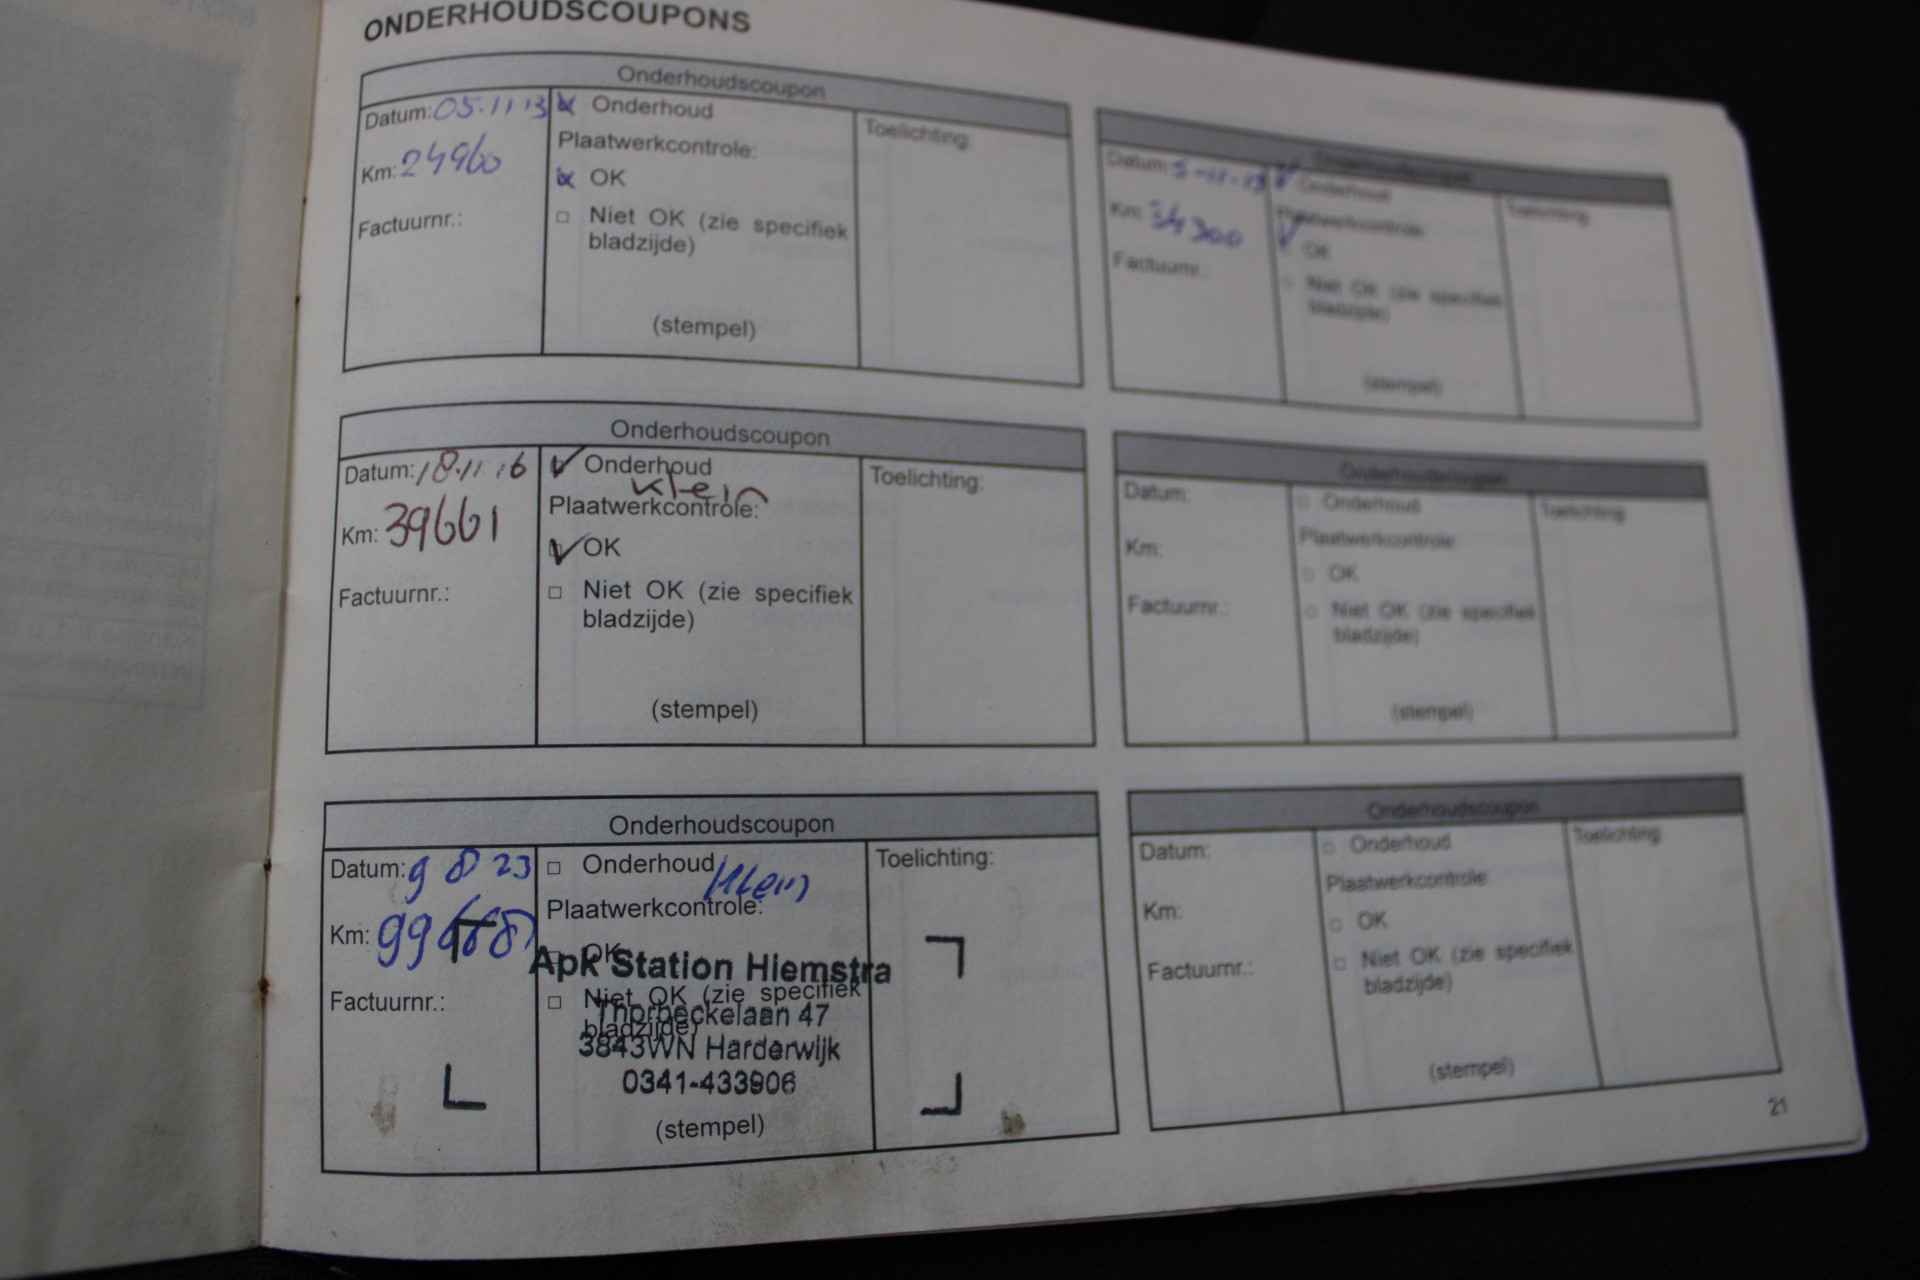 ONDERHOUDSCOUPONS
Onderhoudscoupon
Datum: 05.11 13
Km: 24960
Factuurnr.:
Onderhoud
Plaatwerkcontrole:
OK
Niet OK (zie specifiek
bladzijde)
(stempel)
Toelichting:
Onderhoudscoupon
Datum:
Km: 34300
Factuurnr.:
Onderhoud
Plaatwerkcontrole:
OK
Niet OK (zie specifiek
bladzijde)
(stempel)
Toelichting:
Onderhoudscoupon
Datum: 18.11.16
Km: 39661
Factuurnr.:
Onderhoud
klein
Plaatwerkcontrole:
OK
Niet OK (zie specifiek
bladzijde)
(stempel)
Toelichting:
Onderhoudscoupon
Datum:
Km:
Factuurnr.:
Onderhoud
Plaatwerkcontrole:
OK
Niet OK (zie specifiek
bladzijde)
(stempel)
Toelichting:
Onderhoudscoupon
Datum: 9 8 23
Km:
Factuurnr.:
Onderhoud klein
Plaatwerkcontrole:
OK
Apk Station Hiemstra
Niet OK (zie specifiek
Thorbeckelaan 47
bladzijde)
3843WN Harderwijk
0341-433906
(stempel)
Toelichting:
Onderhoudscoupon
Datum:
Km:
Factuurnr.:
Onderhoud
Plaatwerkcontrole:
OK
Niet OK (zie specifiek
bladzijde)
(stempel)
Toelichting:
21